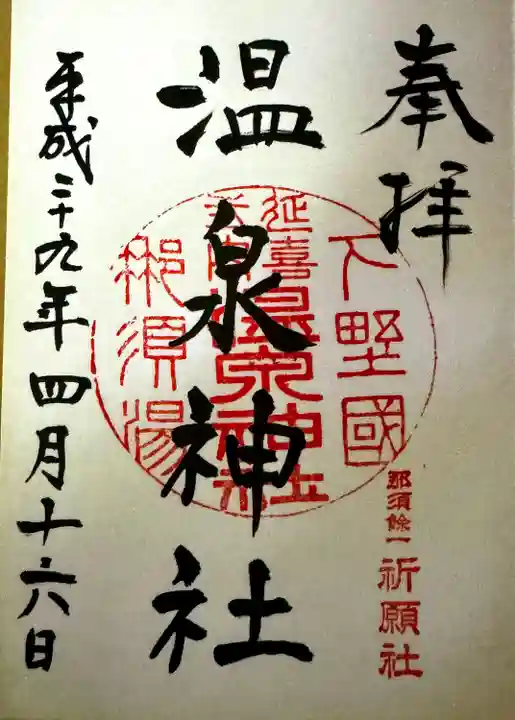 奉拝
下野國
延喜式内
温泉神社
那須湯
温泉神社
那須餘一
祈願社
平成二十九年四月十六日